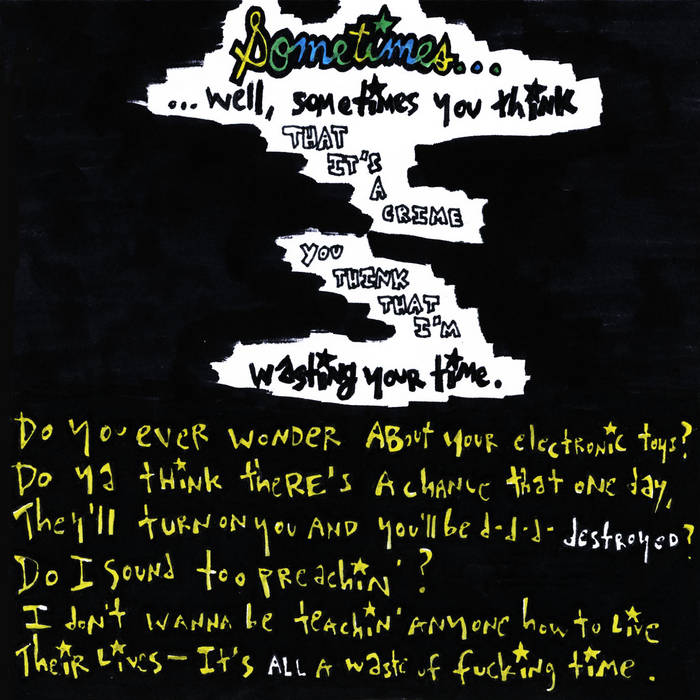 Sometimes...
...well, sometimes you think
THAT
IT'S
A
CRIME
YOU
THINK
THAT
I'M
wasting your time.
Do you ever wonder About your electronic toys?
Do ya think there's a chance that one day,
They'll turn on you and you'll be d-d-d-destroyed?
Do I sound too preachin'?
I don't wanna be teachin' anyone how to live
Their Lives - It's ALL A waste of fucking time.